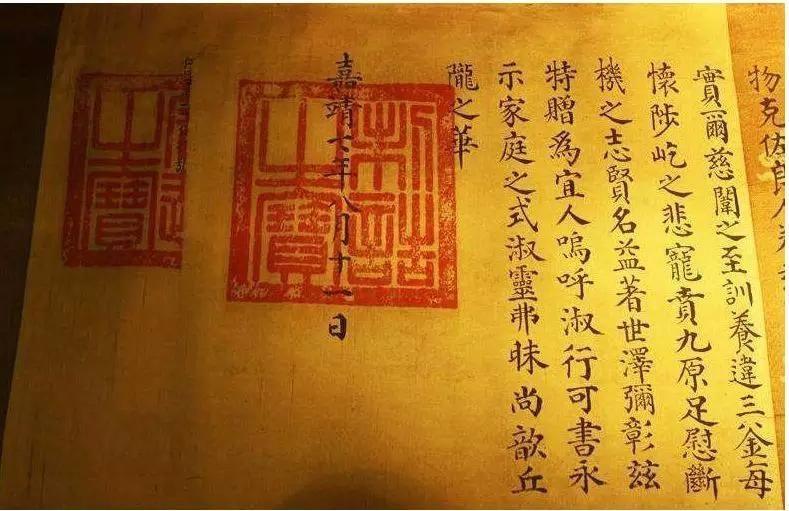 物克佐良人
實爾慈闈之至訓養違三釜每
懷陟屺之悲寵賁九原足慰斷
機之志賢名益著世澤彌彰玆
特贈爲宜人嗚呼淑行可書永
示家庭之式淑靈弗昧尚歆丘
隴之華
嘉靖七年八月十一日
制誥之寶
之寶